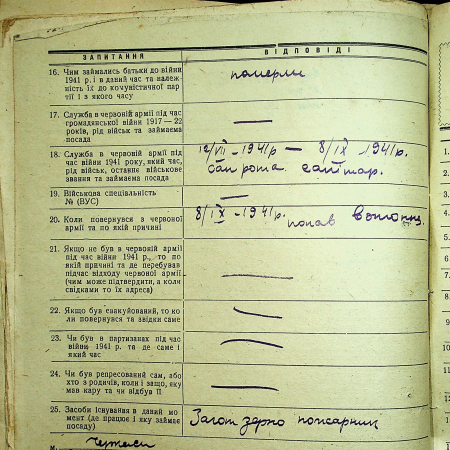 ЗАПИТАННЯ ВІДПОВІДІ
16. Чим займались батьки до війни
1941 р. і в даний час та належ-
ність їх до комуністичної пар
тії і з якого часу
померли
17. Служба в червоній армії під час
громадянської війни 1917—22
років, рід військ та займаєма
посада
—
18. Служба в червоній армії під
час війни 1941 року, який час,
рід військ, останнє військове
звання та займаєма посада
12/VII - 1941 р — 8/IX 1941р.
сан рота. санітар.
19. Військова спеціальність
№ (ВУС)
—
20. Коли повернувся з червоної
армії та по якій причині
8/IX - 1941р. попав
21. Якщо не був в червоній армії
під час війни 1941 р., то по
якій причині та де перебував
підчас відходу червоної армії
(чим може підтвердити, а коли
свідками то їх адреса)
—
22. Якщо був евакуйований, то ко
ли повернувся та звідки саме
—
23. Чи був в партизанах під час
війни 1941 р. та де саме і
який час
—
24. Чи був репресований сам, або
хто з родичів, коли і защо, яку
мав кару та чи відбув її
—
25. Засоби існування в даний мо
мент (де працює і яку займає
посаду)
Загот зерно пожарник